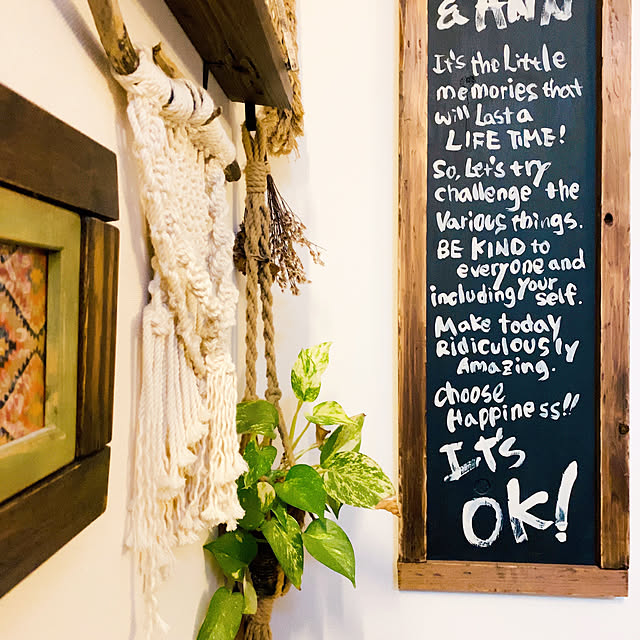 & ANN
It's the Little
memories that
will Last a
LIFE TIME!
So, Let's try
challenge the
Various things.
BE KIND to
everyone and
including your self.
Make today
Ridiculously
Amazing.
choose
Happiness!!
It's
OK!